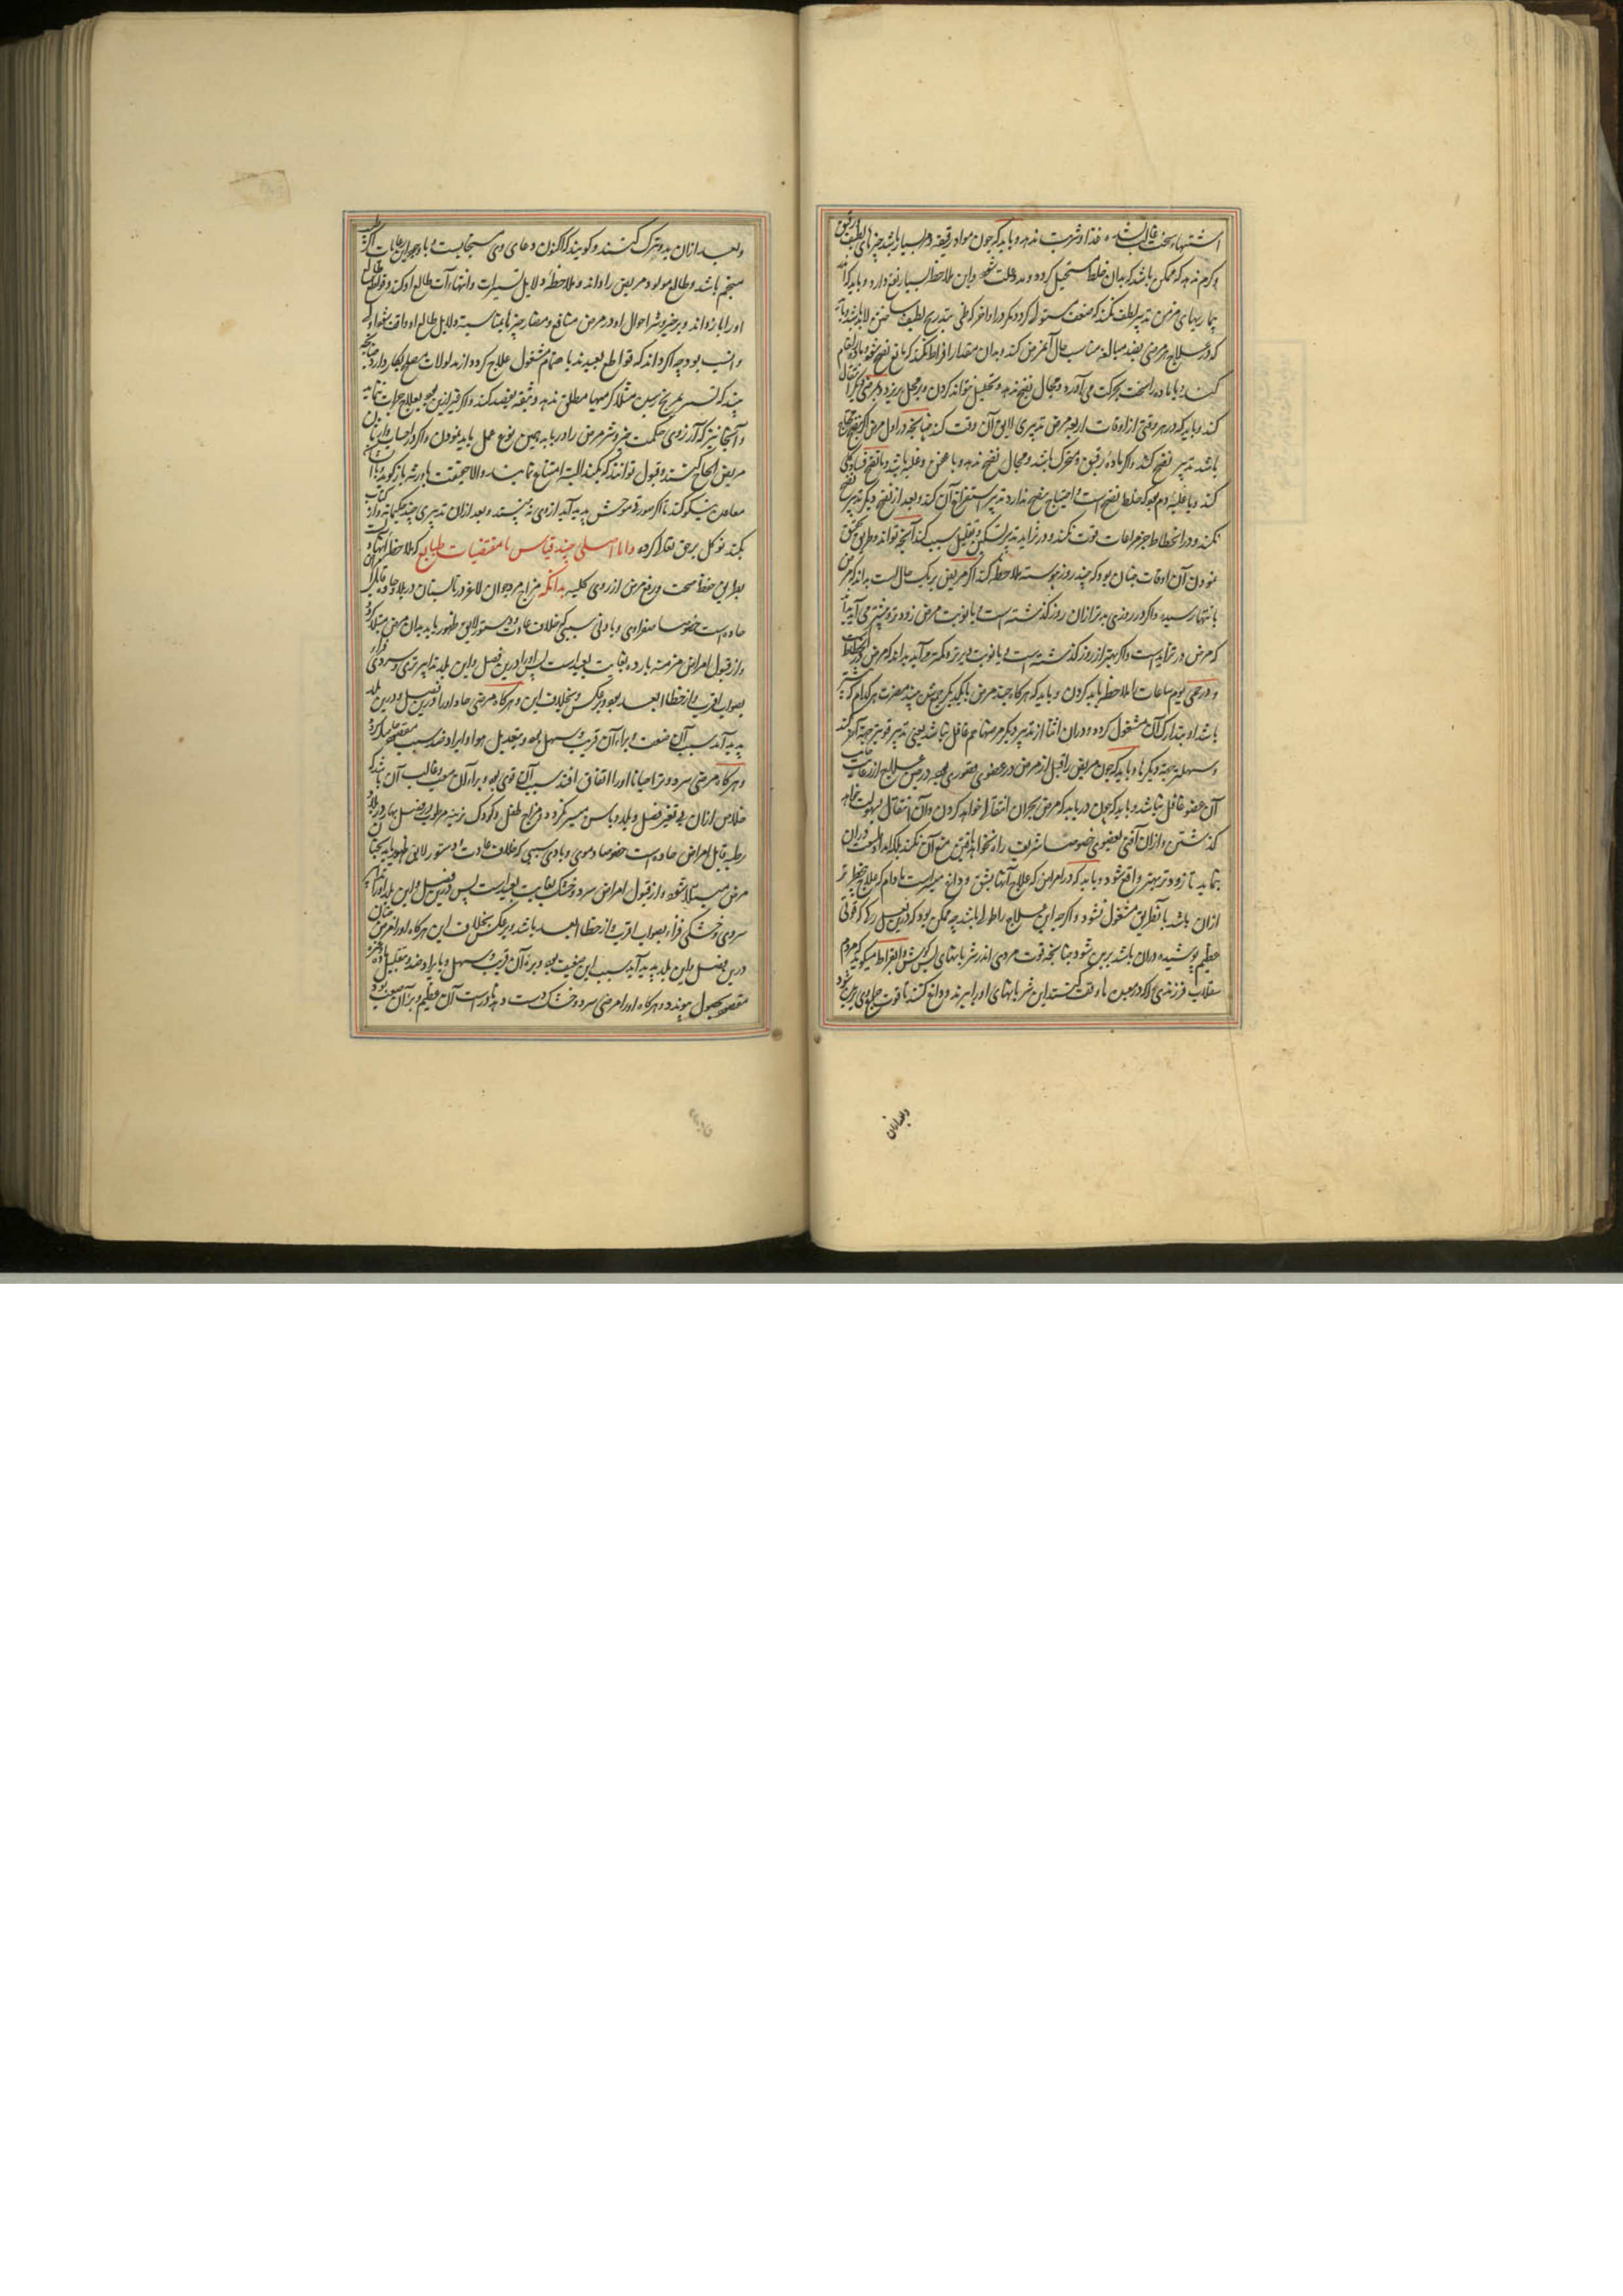 اشتهاء سخت غالب باشد غذا و شربت ندهد و باید که چون مواد رقیقه و بسیار باشد چیزهای لطیف
و کرم ندهد که ممکن باشد که بدان خلط مستحیل کردد و مدد علت شود و این ملاحظه بسیار نفع دارد و باید که
بیماریهای مزمن تدبیر لطیف نکند که ضعف مستولی کردد مکر در اواخر که طی بتدریج لطیف ساختن لابد باشد
که در علاج هر مرضی بقصد مبالغه مناسب حال آن غرض کند و بدان مقدار افراط نکند که مانع نضج شود
کند و یا ماده را سخت بحرکت می‌آورد و مجال نضج ندهد و تحلیل نتواند کردن و بر محل ریزد و مرضی دیگر
کند و باید که در هر وقتی از اوقات اربعه مرض تدبیری لایق آن وقت کند چنانچه در اول مرض اکر نضج
باشد تدبیر نضج کند و اکر ماده رقیق و متحرک باشد و مجال نضج ندهد و یا عفن و غلبه باشد و تا نضج فساد کلی
کند و یا غلبه دم بود که خلط نضج است و احتیاج بنضج ندارد تدبیر استفراغ آن کند و بعد از نضج دیکر تدبیر
نکند و در انحطاط جز مراعات قوت نکند و در تزاید تدبیر تسکین و تقلیل سبب کند آنچه تواند و طریق تحقیق
نمودن آن اوقات چنان بود که چند روز پیوسته ملاحظه کند اکر مریض بر یک حال است بداند که مرض
بانتها رسیده و اکر در روزی بدتر از آن روز کذشته است و یا نوبت مرض زودتر و بیشتر می‌آید
که مرض در تزاید است و اکر بهتر از روز کذشته است و یا نوبت دیرتر و کمتر می‌آید بداند که مرض در انحطاط
و در حمی یوم ساعات را ملاحظه باید کردن و باید که هرکاه چند مرض با یکدیکر جمع شوند مضرت هر کدام که بیشتر
باشد اول بتدارک آن مشغول کردد و در آن اثنا از تدبیر دیکر مرضها هم غافل نباشد یعنی تدبیر قویتر جهت آن کند
و سهلتر جهت دیکرها و باید که چون مریض را قبل از مرض در عضوی قصوری بود در حین علاج از رعایت جانب
آن عضو غافل نباشد و باید که چون دریابد که مرض بحران انتقال خواهد کردن و آن انتقال بسهولت خواهد
کذشتن و از آن آفتی بعضوی خصوصا شریف راه نخواهد یافتن منع آن نکند بلکه امداد طبیعت در آن
بنماید تا زودتر و بهتر واقع شود و باید که در امراض که علاج آنها بشق و داغ میسر است مادام که علاج
از آن باشد بآنطریق مشغول نشود و اکرچه این علاج را طول باشد چه ممکن بود که درین فصل رکی که قوتی
عظیم پوشیده در آن باشد بریدن شود چنانچه قوت مردی اندر شریانهای پس کوش و ابقراط میکوید که مردم
سقلاب فرزندی را که در معبدها وقف کنند این شریانهای او را ببرند و داغ کنند تا قوت جماع وی بریده شود
و بعد از آن
و بعد از آن بدو تبرک کنند و کویند که اکنون دعای وی مستجابست و با وجود این رعایات اکر طبیب
منجم باشد و طالع مولود مریض را داند و ملاحظه دلایل تسییرات و انتهاءآت طالع او کند و قواطع
او را باز داند و بر خیر و شر احوال او در مرض و منافع و مضار چیزها بمناسبت دلایل طالع او واقف شود اولی
و انسب بود چه اکر داند که قواطع بعیدند باهتمام مشغول علاج کردد و از مدلولات مصلح بکار دارد چنانچه
بیند که تسییر بمریخ رسیده مثلا اکر مسهلی مطلق ندهد و ثبقه بفصد کند و اکر قمر این بود بعلاج جرأت نماید
و آنجا نیز که آرزوی حکمت خیر و شر مرض را دریابد همین نوع عمل باید نمودن و اکر در احیاء
مریض الحاح کنند و قبول توانند که بکند البته امتناع نمایند و الا حقیقت با ورثه باز کوید
معاملت نیکو کند تا اکر صورتی موحش پدید آید از وی نه بینند و بعد از آن تدبیری چند حکیمانه
بکند توکل بر حق تعالی کرده و اما اصلی چند قیاس با مقتضیات طبایع که ملاحظه
بطریق حفظ صحت و رفع مرض از روی کلیه بدانکه مزاج مرد جوان لاغر در تابستان در بلاد حاره قابل امراض
حاده است خصوصا صفراوی و بادنی سببی که خلاف عادت و دستور لایق ظهور یابد بدان مرض مبتلا کردد
و از قبول امراض مزمنه بارده بغایت بعید است پس او را درین فصل و این بلد تدابیر تری و سردی فزا
بصواب اقرب و از خطا ابعد بود و بر عکس و خلاف این و هرکاه مرضی حاد او را درین فصل و درین بلد
پدید آمد سبب آن ضعیف و برء آن قریب و سهل بود و بتعدیل هوا و ایراد ضد سبب مقصود حاصل کردد
و هرکاه مرضی سرد و تر احیانا او را اتفاق افتد سبب آن قوی بود و برء آن صعب و غالب آن باشد که
خلاص از آن بی تغیر فصل و بلد و باس میسر نکردد و مزاج طفل و کودک فربه مرطوبی در فصل بهار در بلاد
رطبه قابل امراض حاده است خصوصا دموی و بادی سببی که خلاف عادت و دستور لایق ظهور یابد بچنان
مرض مبتلا شود و از قبول امراض سرد و خشک بغایت بعید است پس درین فصل و این بلد او را تدابیر
سردی و خشکی فزاء بصواب اقرب و از خطا ابعد باشد و بر عکس خلاف این هرکاه او را مرض چنان
درین فصل و این بلد پدید آید سبب این ضعیف بود و برء آن قریب و سهل و بایراد ضد و تقلیل ماده
مقصود بحصول پیوندد و هرکاه او را مرضی سرد و خشک دست دهد نادر است آن عظیم و برء آن صعب بود